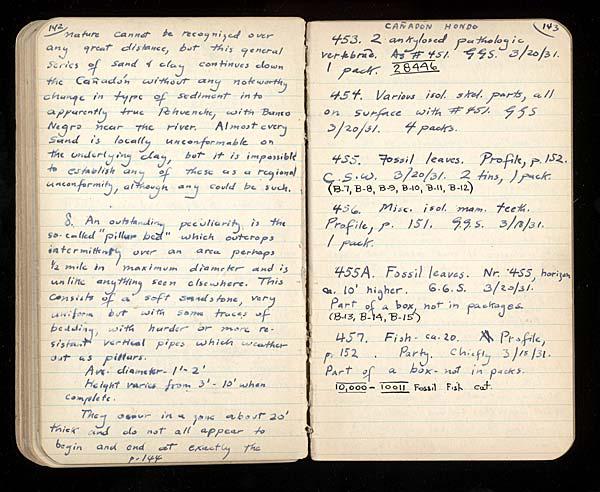 142
nature cannot be recognised over
any great distance, but this general
series of sand & clay continues down
the Cañadón without any noteworthy
change in type of sediment into
apparently true Pehuenche, with Banco
Negro near the river. Almost every
sand is locally unconformable on
the underlying clay, but it is impossible
to establish any of these as a regional
unconformity, although any could be such.
8. An outstanding peculiarity is the
so-called "pillar bed" which outcrops
intermittently over an area perhaps
1/2 mile in maximum diameter and is
unlike anything seen elsewhere. This
consists of a soft sandstone, very
uniform but with some traces of
bedding, with harder or more re-
sistant vertical pipes which weather
out as pillars.
Ave. diameter - 1'-2'
Height varies from 3'-10' when
complete.
They occur in a zone about 20'
thick and do not all appear to
begin and end at exactly the
p. 144
CAÑADON HONDO
143
453. 2 ankylosed pathologic
vertebrae. As # 451. G.G.S. 3/20/31.
1 pack. 28446
454. Various isol. skel. parts, all
on surface with # 451. GGS
3/20/31. 4 packs.
455. Fossil leaves. Profile, p. 152.
C.S.W. 3/20/31. 2 tins, 1 pack.
(B-7, B-8, B-9, B-10, B-11, B-12)
456. Misc. isol. mam. teeth.
Profile, p. 151. G.G.S. 3/18/31.
1 pack.
455A. Fossil leaves. Nr. 455, horizon
ca. 10' higher. G.G.S. 3/20/31.
Part of a box, not in packages.
(B-13, B-14, B-15)
457. Fish - ca. 20. Profile,
p. 152. Party. Chiefly 3/15/31.
Part of a box - not in packs.
10,000 - 10011 Fossil Fish cat.